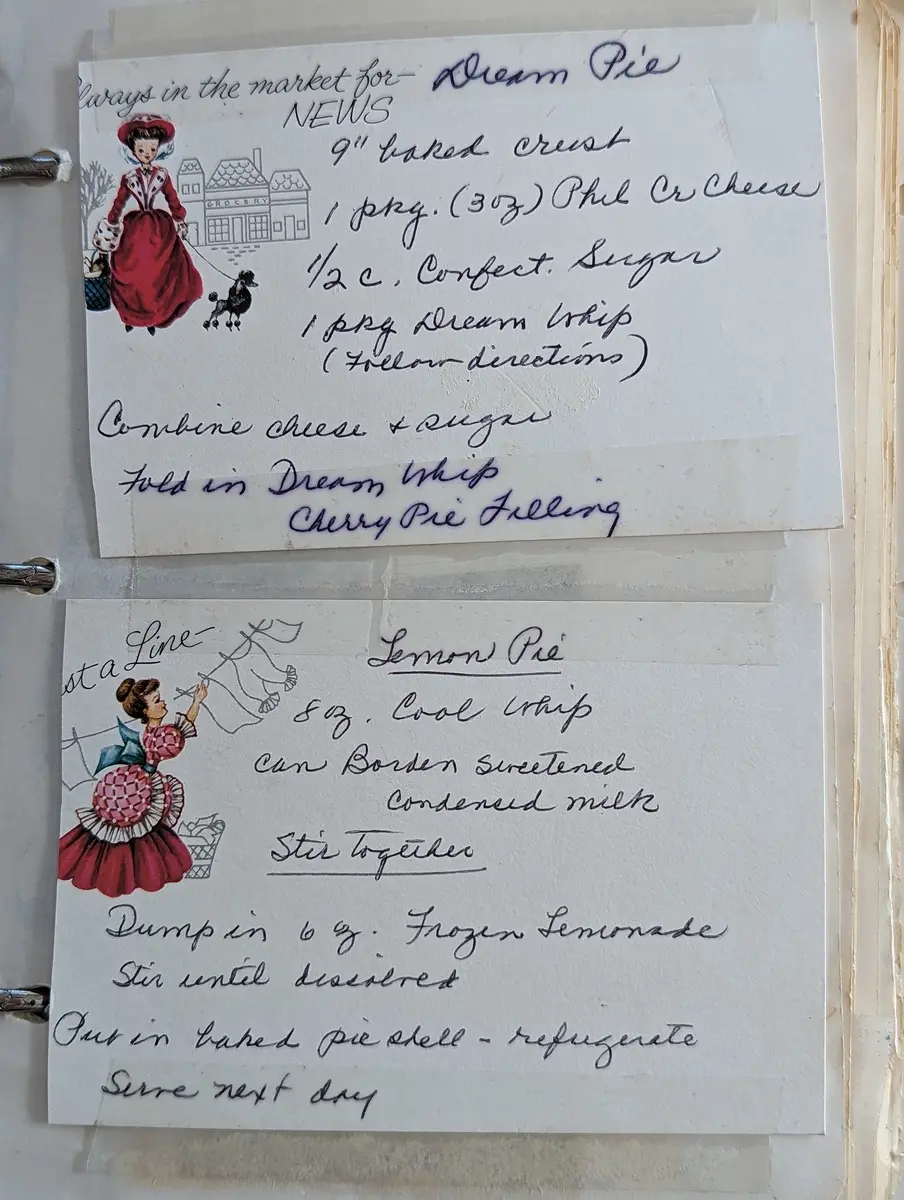 lways in the market for— Dream Pie
NEWS
GROCERY
9" baked crust
1 pkg. (3oz) Phil Cr Cheese
1/2 c. Confect. Sugar
1 pkg Dream Whip
(Follow directions)
Combine cheese + sugar
Fold in Dream Whip
Cherry Pie Filling
st a Line—
Lemon Pie
8 oz. Cool Whip
can Borden sweetened
condensed milk
Stir Together
Dump in 6 oz. Frozen Lemonade
Stir until dissolved
Put in baked pie shell - refrigerate
Serve next day